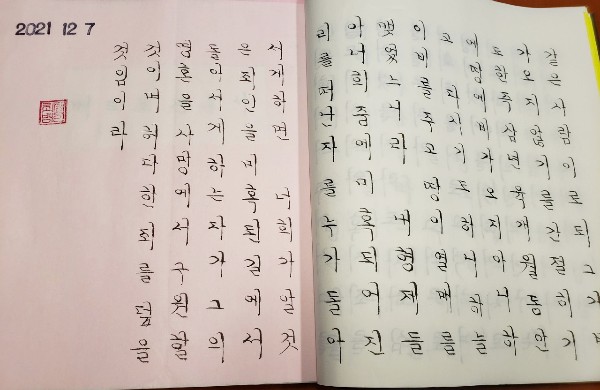 같은 사람이로되 그가 비
가 오지 않기를 간절히 기
도한즉 삼 년 육 개월 동안
땅에 비가 오지 아니하
고 다시 기도하니 하늘
이 비를 주고 땅이 열매를
맺었느니라 내 형제들
아 너희 중에 미혹되어 진
리를 떠난 자를 누가 돌아
서게 하면 너희가 알 것
은 죄인을 미혹된 길에서
돌아서게 하는 자가 그의
영혼을 사망에서 구원할
것이며 허다한 죄를 덮을
것임이라
2021 12 7